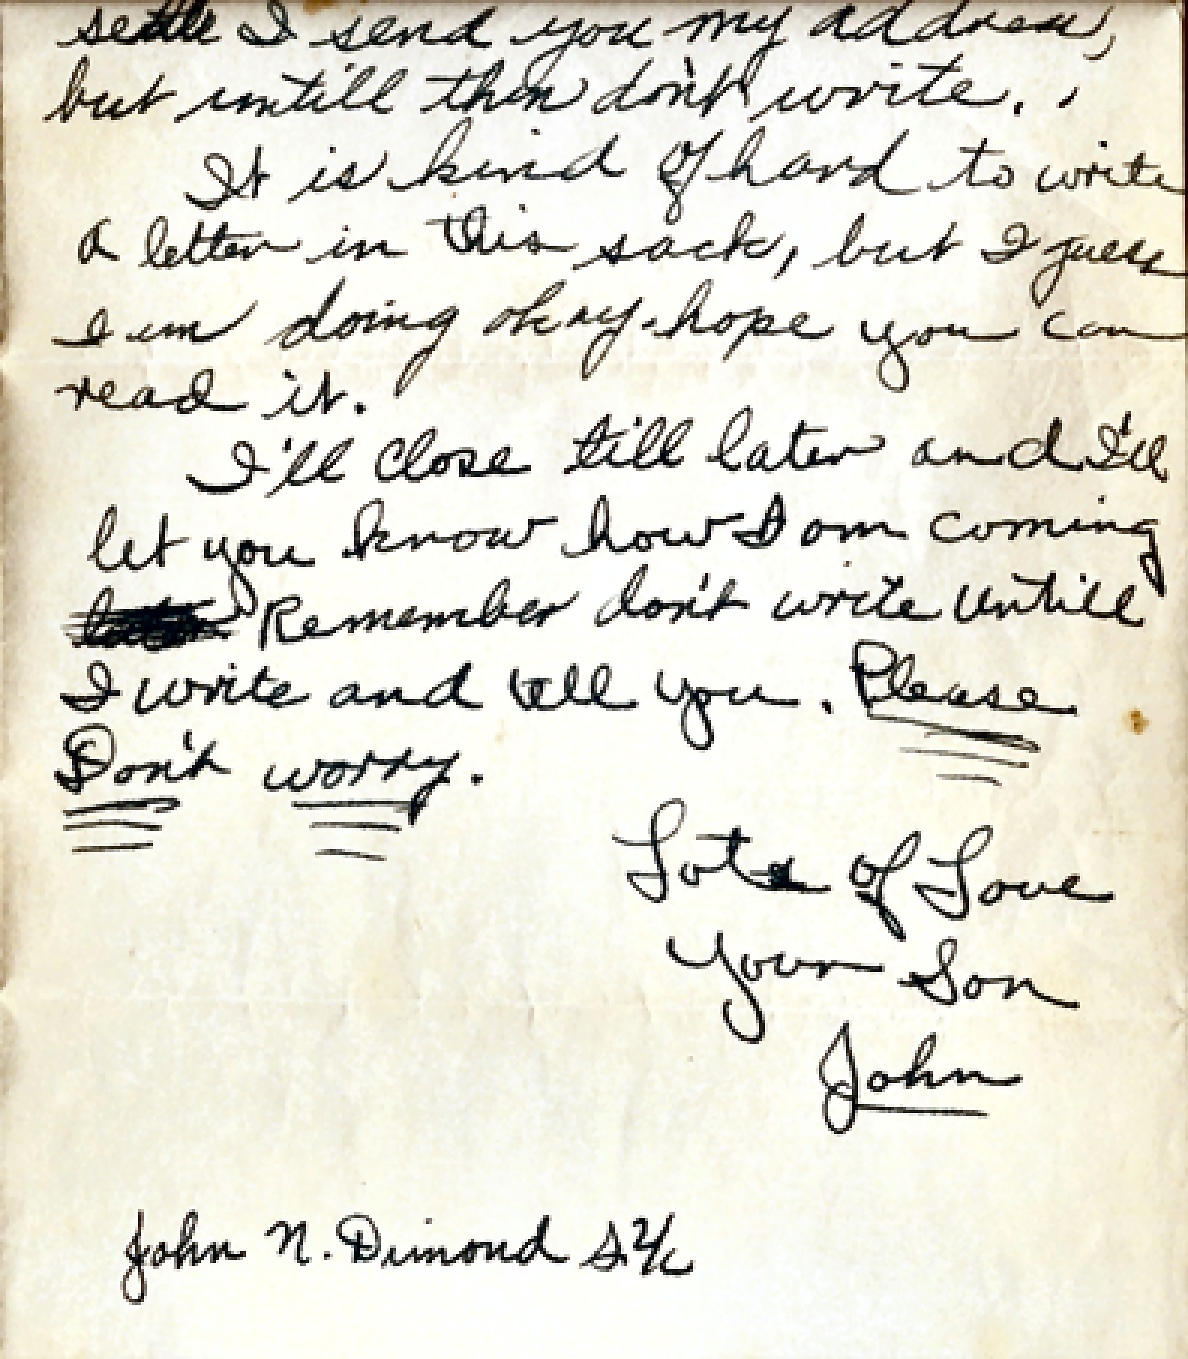 settle I send you my address,
but untill then don't write.
It is kind of hard to write
a letter in this sack, but I guess
I am doing okay. hope you can
read it.
I'll close till later and I'll
let you know how I am coming
later Remember don't write untill
I write and tell you. Please
Don't worry.
Lots of Love
Your Son
John
John N. Dimond S2/c